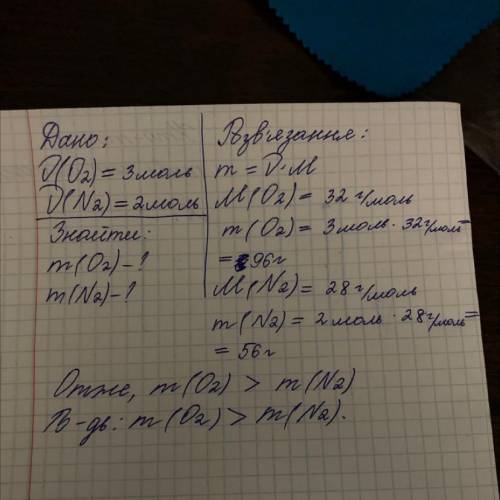 Дано:
ν(O2) = 3 моль
ν(N2) = 2 моль
Знайти:
m(O2) - ?
m(N2) - ?
Розв'язання:
m = ν·M
M(O2) = 32 г/моль
m(O2) = 3 моль · 32 г/моль =
= 96 г
M(N2) = 28 г/моль
m(N2) = 2 моль · 28 г/моль =
= 56 г
Отже, m(O2) > m(N2)
В-дь: m(O2) > m(N2).